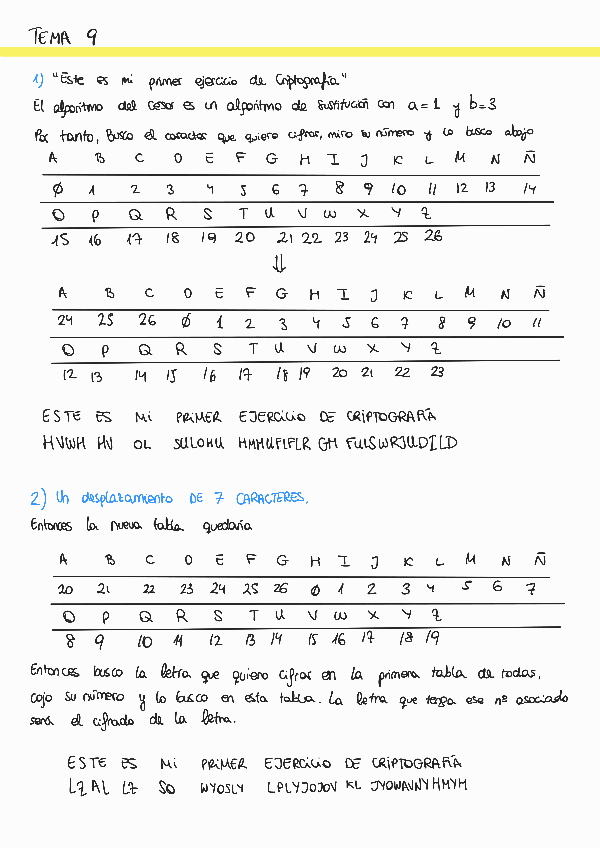 TEMA 9
1) "Este es mi primer ejercicio de Criptografía"
El algoritmo del cesar es un algoritmo de sustitución con a=1 y b=3
Por tanto, busco el caracter que quiero cifrar, miro su número y lo busco abajo
A B C D E F G H I J K L M N Ñ
0 1 2 3 4 5 6 7 8 9 10 11 12 13 14
O P Q R S T U V W X Y Z
15 16 17 18 19 20 21 22 23 24 25 26
⇓
A B C D E F G H I J K L M N Ñ
24 25 26 0 1 2 3 4 5 6 7 8 9 10 11
O P Q R S T U V W X Y Z
12 13 14 15 16 17 18 19 20 21 22 23
ESTE ES Mi PRiMER EJERCiCIO DE CRiPTOGRAFÍA
HVWH HV OL SULOHU HMHUFLFLR GH FULSWRJUDILD
2) Un desplatamiento DE 7 CARACTERES.
Entonces la nueva tabla quedaría
A B C D E F G H I J K L M N Ñ
20 21 22 23 24 25 26 0 1 2 3 4 5 6 7
O P Q R S T U V W X Y Z
8 9 10 11 12 13 14 15 16 17 18 19
Entonces busco la letra que quiero cifrar en la primera tabla de todas,
cojo su número y lo busco en esta tabla. La letra que tenga ese nº asociado
será el cifrado de la letra.
ESTE ES Mi PRiMER EJERCiCIO DE CRiPTOGRAFÍA
LZAL LZ SO WYOSLY LPLYJOJOV KL JYOWAVNYHMYH